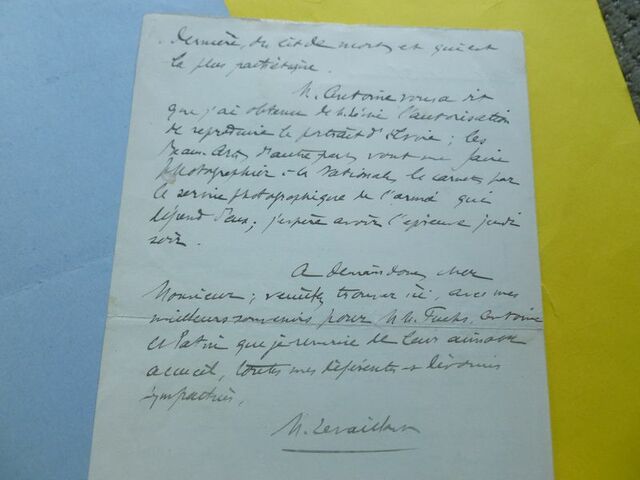 dernière, du lit de mort, et qui est
le plus pathétique.
M. Antoine vous a dit
que j'ai obtenu de l'autorisation
de reproduire le portrait d' ; les
Beaux-Arts d'autre part vont me faire
photographier à la Nationale le carnet par
le service photographique de l'armée qui
dépend d'eux ; j'espère avoir l'épreuve jeudi
soir.
A demain donc, cher
Monsieur ; veuillez trouver ici, avec mes
meilleurs souvenirs pour MM. Fuchs, Antoine
et que je remercie de leur aimable
accueil, toutes mes déférentes et
sympathies.
M. Levaillant